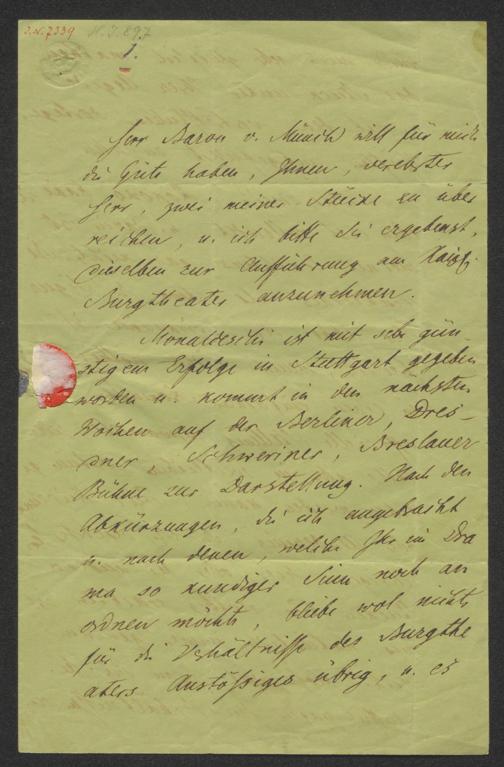 J.N. 7339 H.I. 897
1.
Herr Baron v. Münch will für mich
die Güte haben, Ihnen, verehrter
Herr, zwei meiner Stücke zu über
reichen, u. ich bitte Sie ergebenst,
dieselben zur Aufführung am Kaiserl.
Burgtheater anzunehmen.
Monaldeschi ist mit sehr gün
stigem Erfolge in Stuttgart gegeben
worden u. kommt in den nächsten
Wochen auf der Berliner, Dres-
dner Schweriner, Breslauer
Bühne zur Darstellung. Nach den
Abkürzungen, die ich angebracht
u. nach denen, welche Ihr im Dra
ma so kundiger Sinn noch an
ordnen möchte, bliebe wol nichts
für die Verhältnisse des Burgthe
aters Anstößiges übrig, u. es